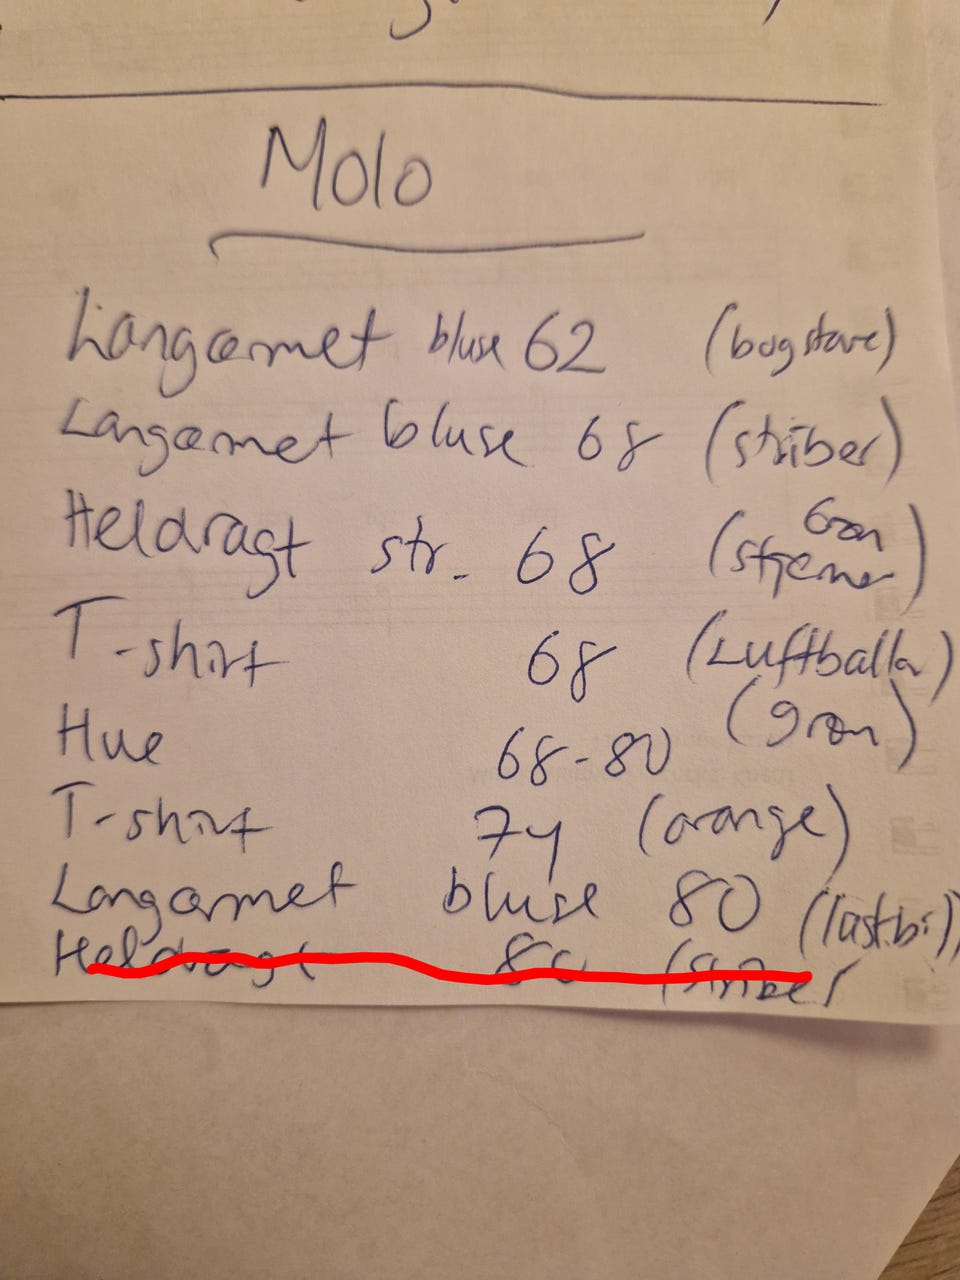 Molo
Langærmet bluse 62 (bogstave)
Langærmet bluse 68 (striber)
Heldragt str. 68 (Grøn stjerner)
T-shirt 68 (Luftballon)
Hue 68-80 (grøn)
T-shirt 74 (orange)
Langærmet bluse 80 (lastbil)
Heldragt 80 (striber